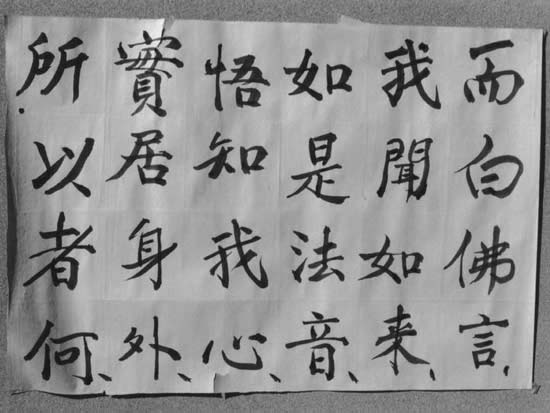 而白佛言、
我聞如来、
如是法音、
悟知我心、
實居身外、
所以者何、